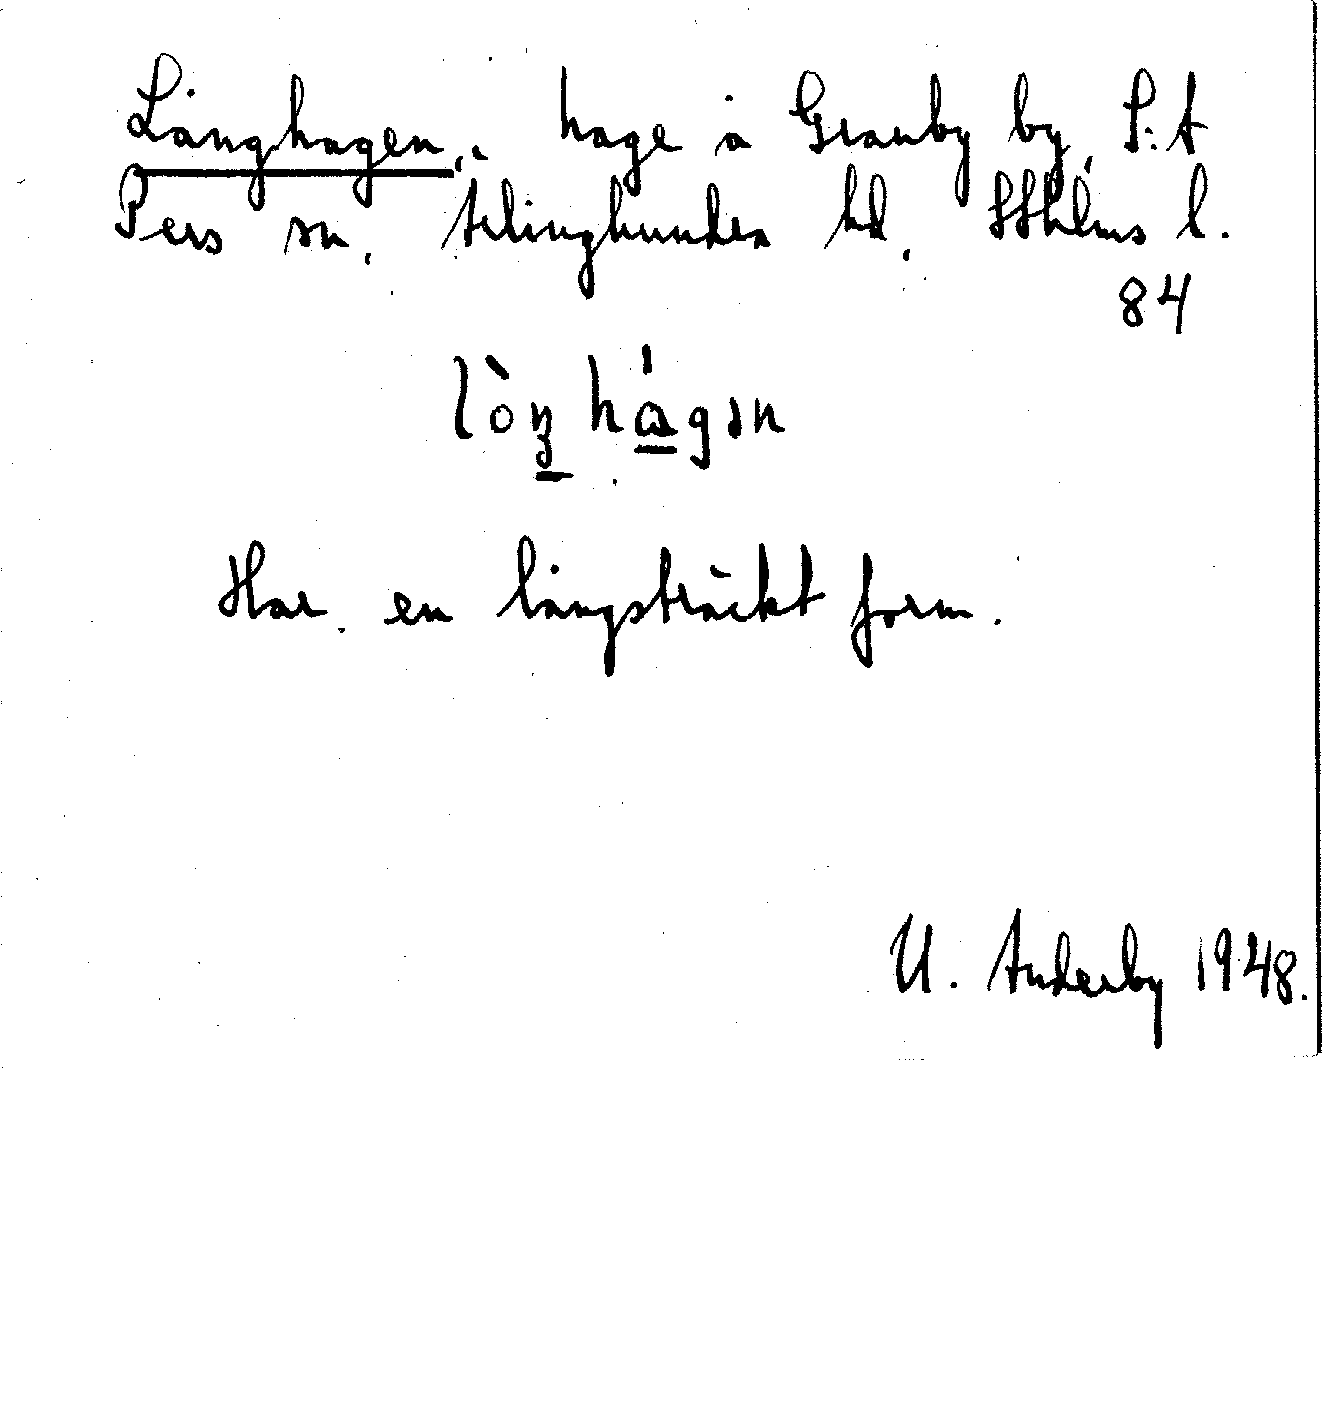 Långhagen, hage å Granby by, S:t
Pers sn, Ärlinghundra hd, Sthlms l.
84
lòŋ hágən
Har en långsträckt form.
U. Anderby 1948.